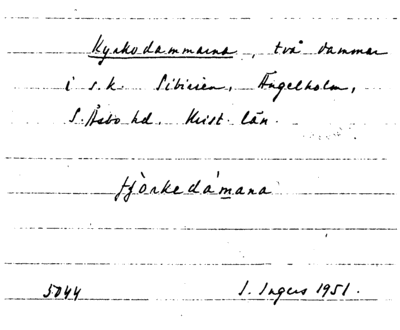 Kyrkodammarna, två dammar
i s.k. Sibirien, Ängelholm,
S. Åsbo hd. Krist. län.
tjòrkedámana
5044 I. Ingers 1951.